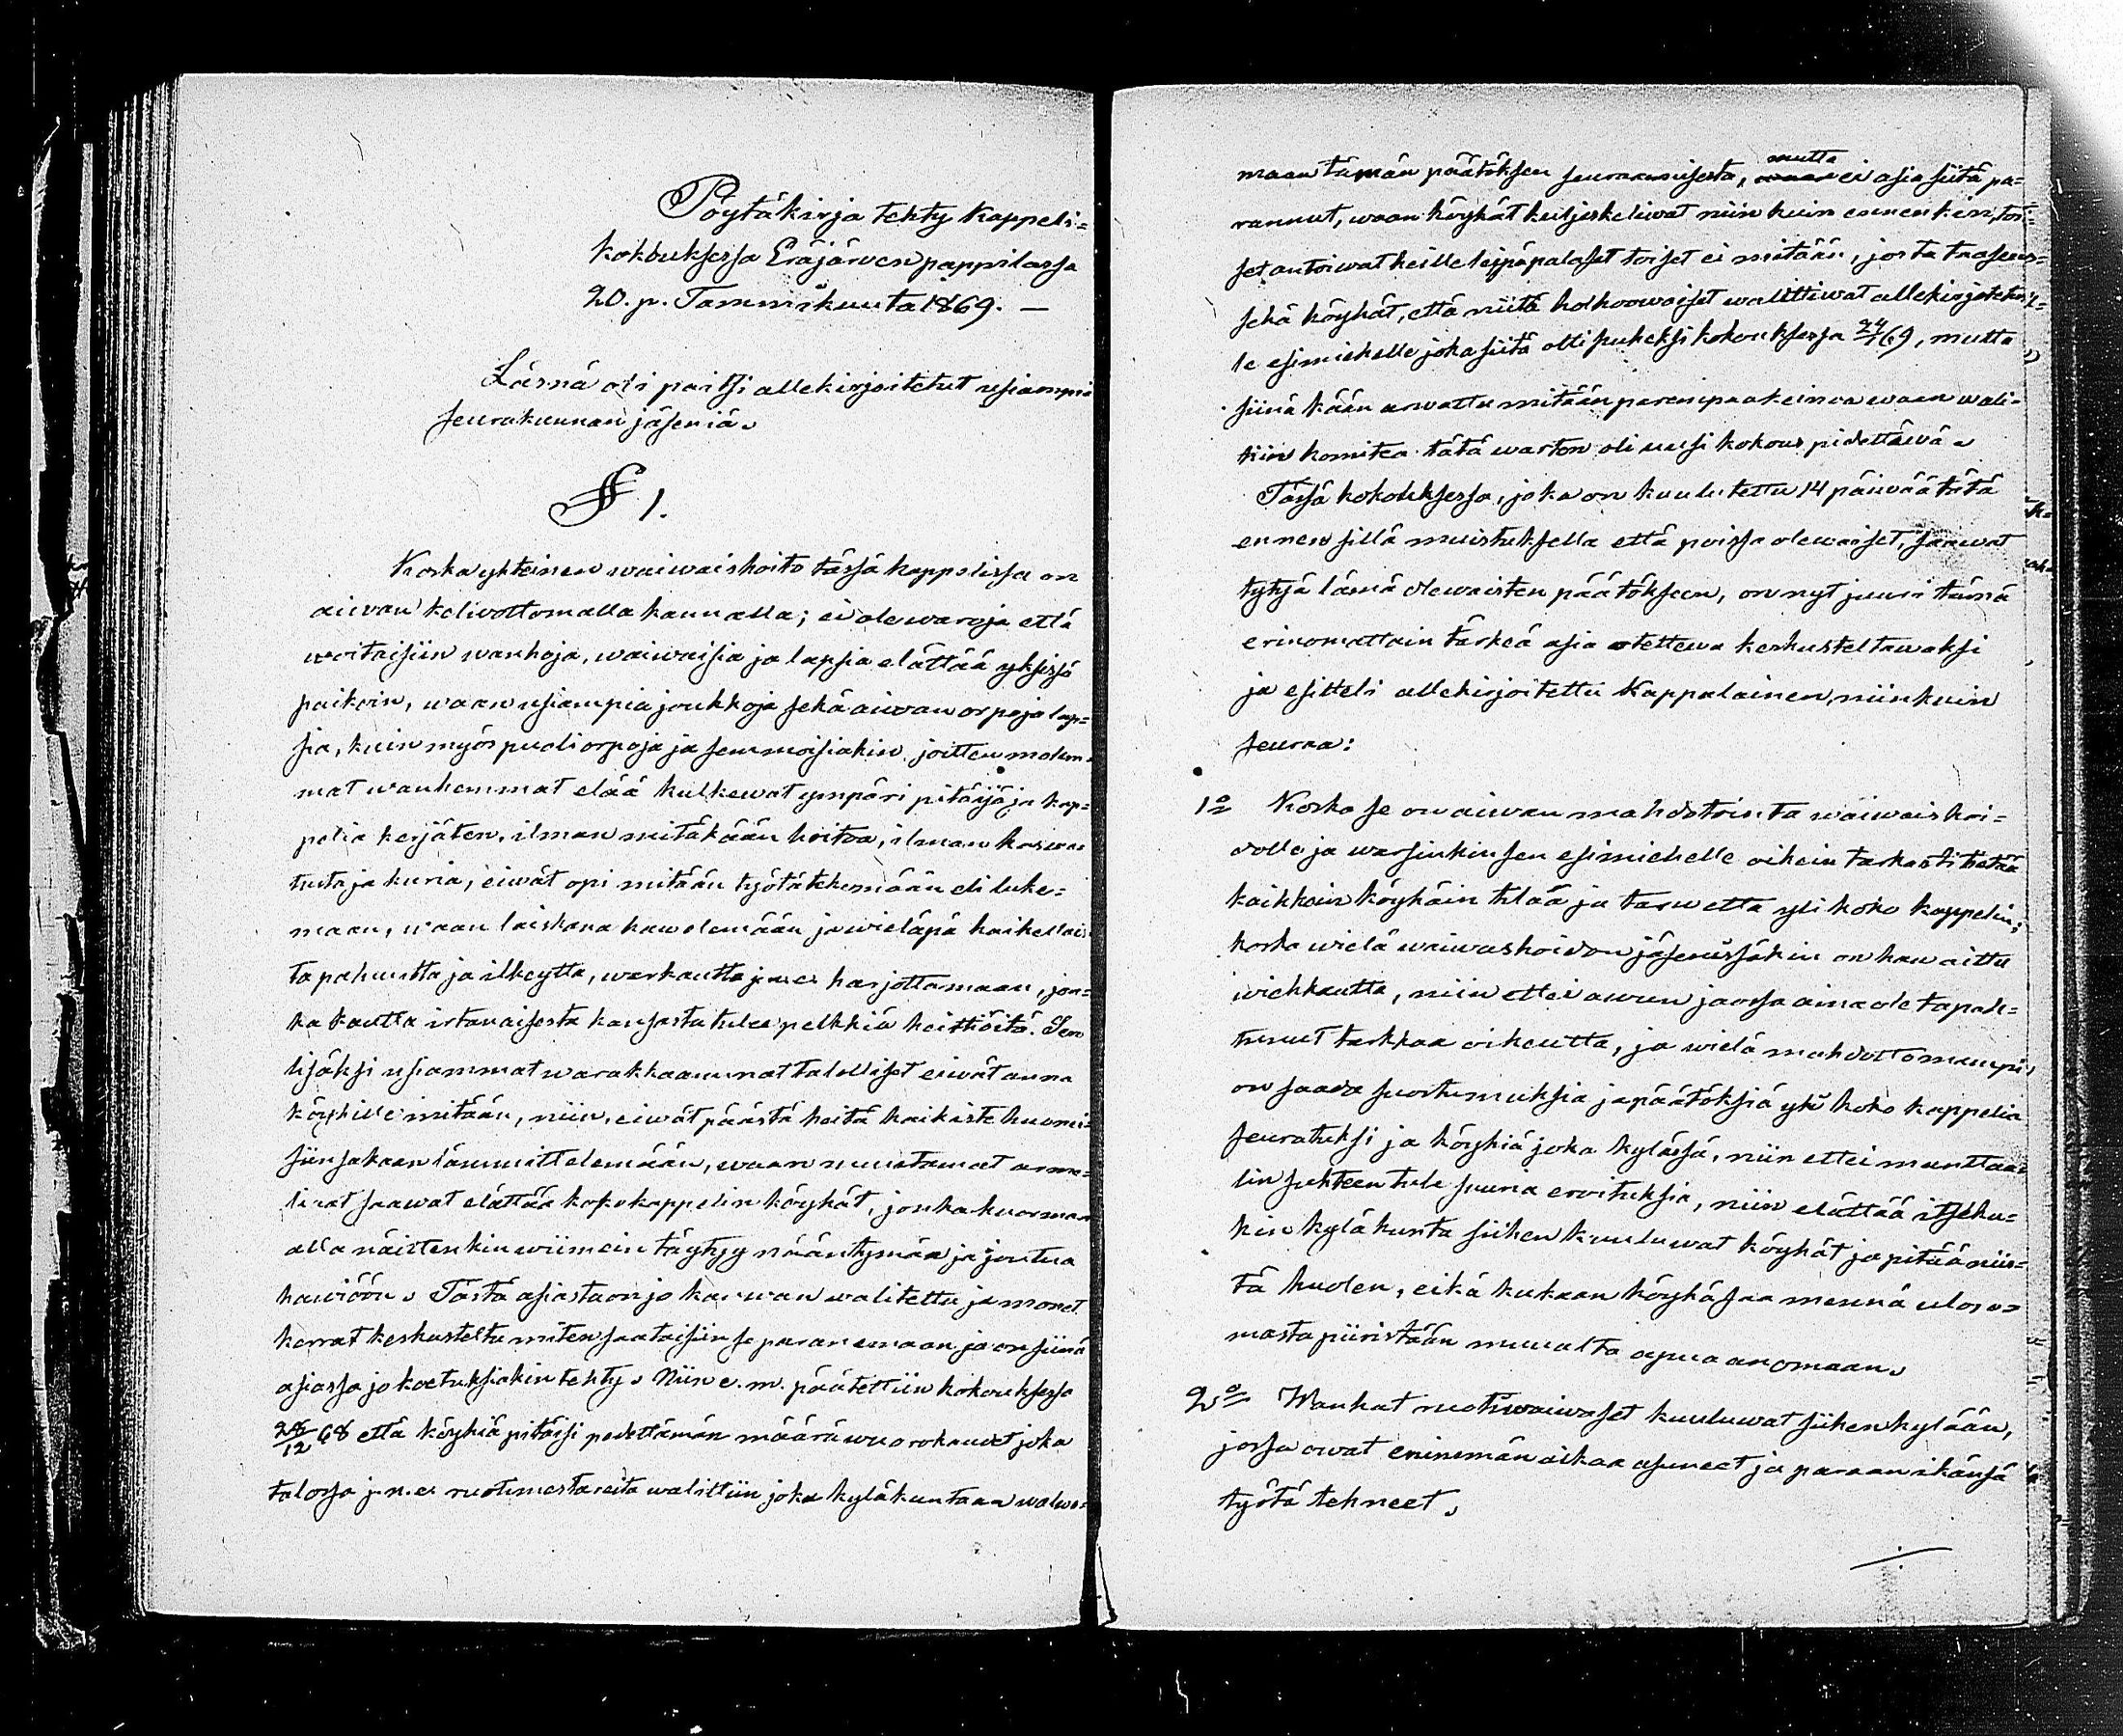 Pöytäkirja tehty Kappeli=
kokouksessa Eräjärven pappilassa
20. p. Tammikuuta 1869. —
Läsnä oli paitsi allekirjoitetut usiampia
seurakunnan jäseniä.
§ 1.
Koska yhteinen waiwaishoito tässä kappelissa on
aiwan kelwottomalla kannalla; ei ole waroja että
woitaisiin wanhoja, waiwaisia ja lapsia elättää yksissä
paikoin, waan usiampia joukkoja sekä aiwan orpoja lap=
sia, kuin myös puoliorpoja ja semmoisiakin joitten molem=
mat wanhemmat elää kulkewat ympäri pitäjiä ja kap=
pelia kerjäten, ilman mitäkään hoitoa, ilman kaswa
tusta ja kuria, eiwät opi mitään työtä tekemään eli luke=
maan, waan laiskana kaw olemaan ja wieläpä kaikellais
ta pahuutta ja ilkeyttä, warkautta j.n.e. harjottamaan, jon=
ka kautta irtanaisesta kansasta tulee pelkkiä heittiöitä. Sen
lisäksi usiammat warakkaammat talolliset eiwät anna
köyhille mitään, niin, eiwät päästä heitä kaikiste huonei=
siinsakaan lämmittelemään, waan muutamat arme=
liaat saawat elättää koko kappelin köyhät, jonka kuorman
alla näittenkin wiimein täytyy nääntymän ja joutua
häwiöön. Tästä asiasta on jo kauwan walitettu ja monet
kerrat keskusteltu miten saataisiin se paranemaan ja on siinä
asiassa jo koetuksiakin tehty. Niin e.m. päätettiin kokouksessa
28/12 68 että köyhiä pitäisi pidettämän määrä wuorokaudet joka
talossa j.n.e. ruotimestareita walittiin joka kyläkuntaan walwo=
maan tämän päätöksen seuraamisesta, mutta ei asia siitä pa=
rannut, waan köyhät kuljeskeliwat niin kuin ennenkin, toi=
set antoiwat heille leipäpalaset toiset ei mitään, josta taasen
sekä köyhät, että niitä holhoowaiset walittiwat allekirjoitetul=
le esimiehelle joka siitä otti puheksi kokouksessa 24/1 69, mutta
siinäkään arwattu mitään parempaa keinoa waan wali=
tiin komitea tätä warten oli uusi kokous pidettäwä.
Tässä kokouksessa, joka on kuulutettu 14 päiwää tätä
ennen sillä muistuksella että poissa olewaiset, saawat
tytyä läsnä olewaisten päätökseen, on nyt juuri tämä
erinomattain tärkeä asia otettawa keskusteltawaksi
ja esitteli allekirjoitettu Kappalainen, niinkuin
seuraa:
1o Koska se on aiwan mahdotointa waiwaishoi=
dolle ja warsinkin sen esimiehelle oikein tarkasti tietää
kaikkein köyhäin tilaa ja tarwetta yli koko kappelin;
koska wielä waiwashoidon jäsenissäkin on hawaittu
wiekkautta, niin ettei awun jaossa aina ole tapah=
tunut tarkkaa oikeutta, ja wielä mahdottomampi
on saada suostumuksia ja päätöksiä yli koko kappelia
seuratuksi ja köyhiä joka kylässä, niin ettei manttaa=
lin suhteen tule suuria eroituksia, niin elättää itseku=
kin kyläkunta siihen kuuluwat köyhät ja pitää niis=
tä huolen, eikä kukaan köyhä saa mennä ulos o=
masta piiristään muualta apua anomaan.
2o Wanhat ruotiwaiwaset kuuluwat siihen kylään,
jossa owat eninemän aikaa asuneet ja paraan ikänsä
työtä tehneet.